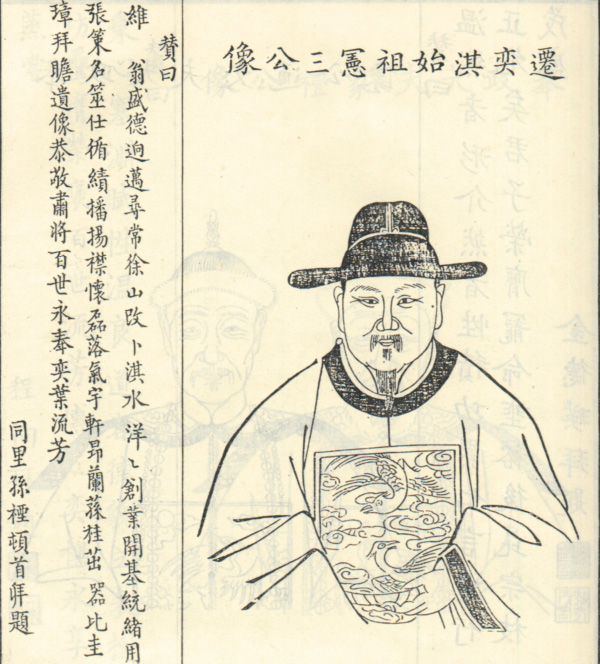 遷奕淇始祖憲三公像
贊曰
維 翁盛德迥邁尋常徐山改卜淇水洋〻創業開基統緒用
張策名筮仕循績播揚襟懷磊落氣宇軒昂蘭蓀桂茁器比圭
璋拜瞻遺像恭敬肅將百世永奉奕葉流芳
同里孫禋頓首拜題